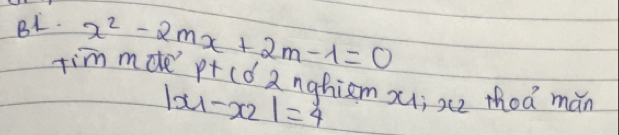 B1. x² - 2mx + 2m - 1 = 0
tìm m để pt có 2 nghiệm x1; x2 thoả mãn
|x1 - x2| = 4